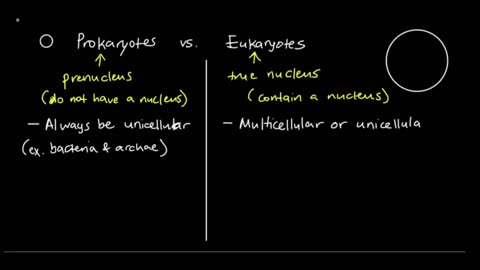 Prokaryotes vs. Eukaryotes
prenucleus
(do not have a nucleus)
— Always be unicellular
(ex. bacteria & archae)
true nucleus
(contain a nucleus)
— Multicellular or unicellula